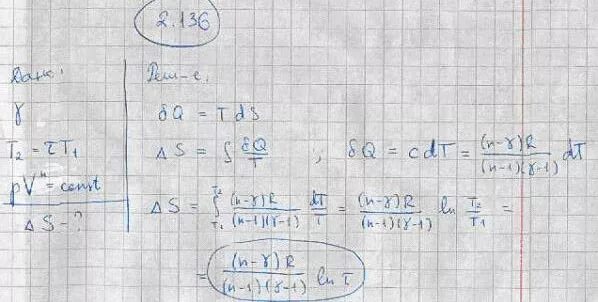 2.136
Дано:
γ
T₂ = τT₁
pVⁿ = const
ΔS - ?
Реш-е.
δQ = T dS
ΔS = ∫ δQ/T ; δQ = c dT = (n-γ)R/((n-1)(γ-1)) dT
ΔS = ∫_{T₁}^{T₂} (n-γ)R/((n-1)(γ-1)) dT/T = (n-γ)R/((n-1)(γ-1)) ln T₂/T₁ =
= (n-γ)R/((n-1)(γ-1)) ln τ